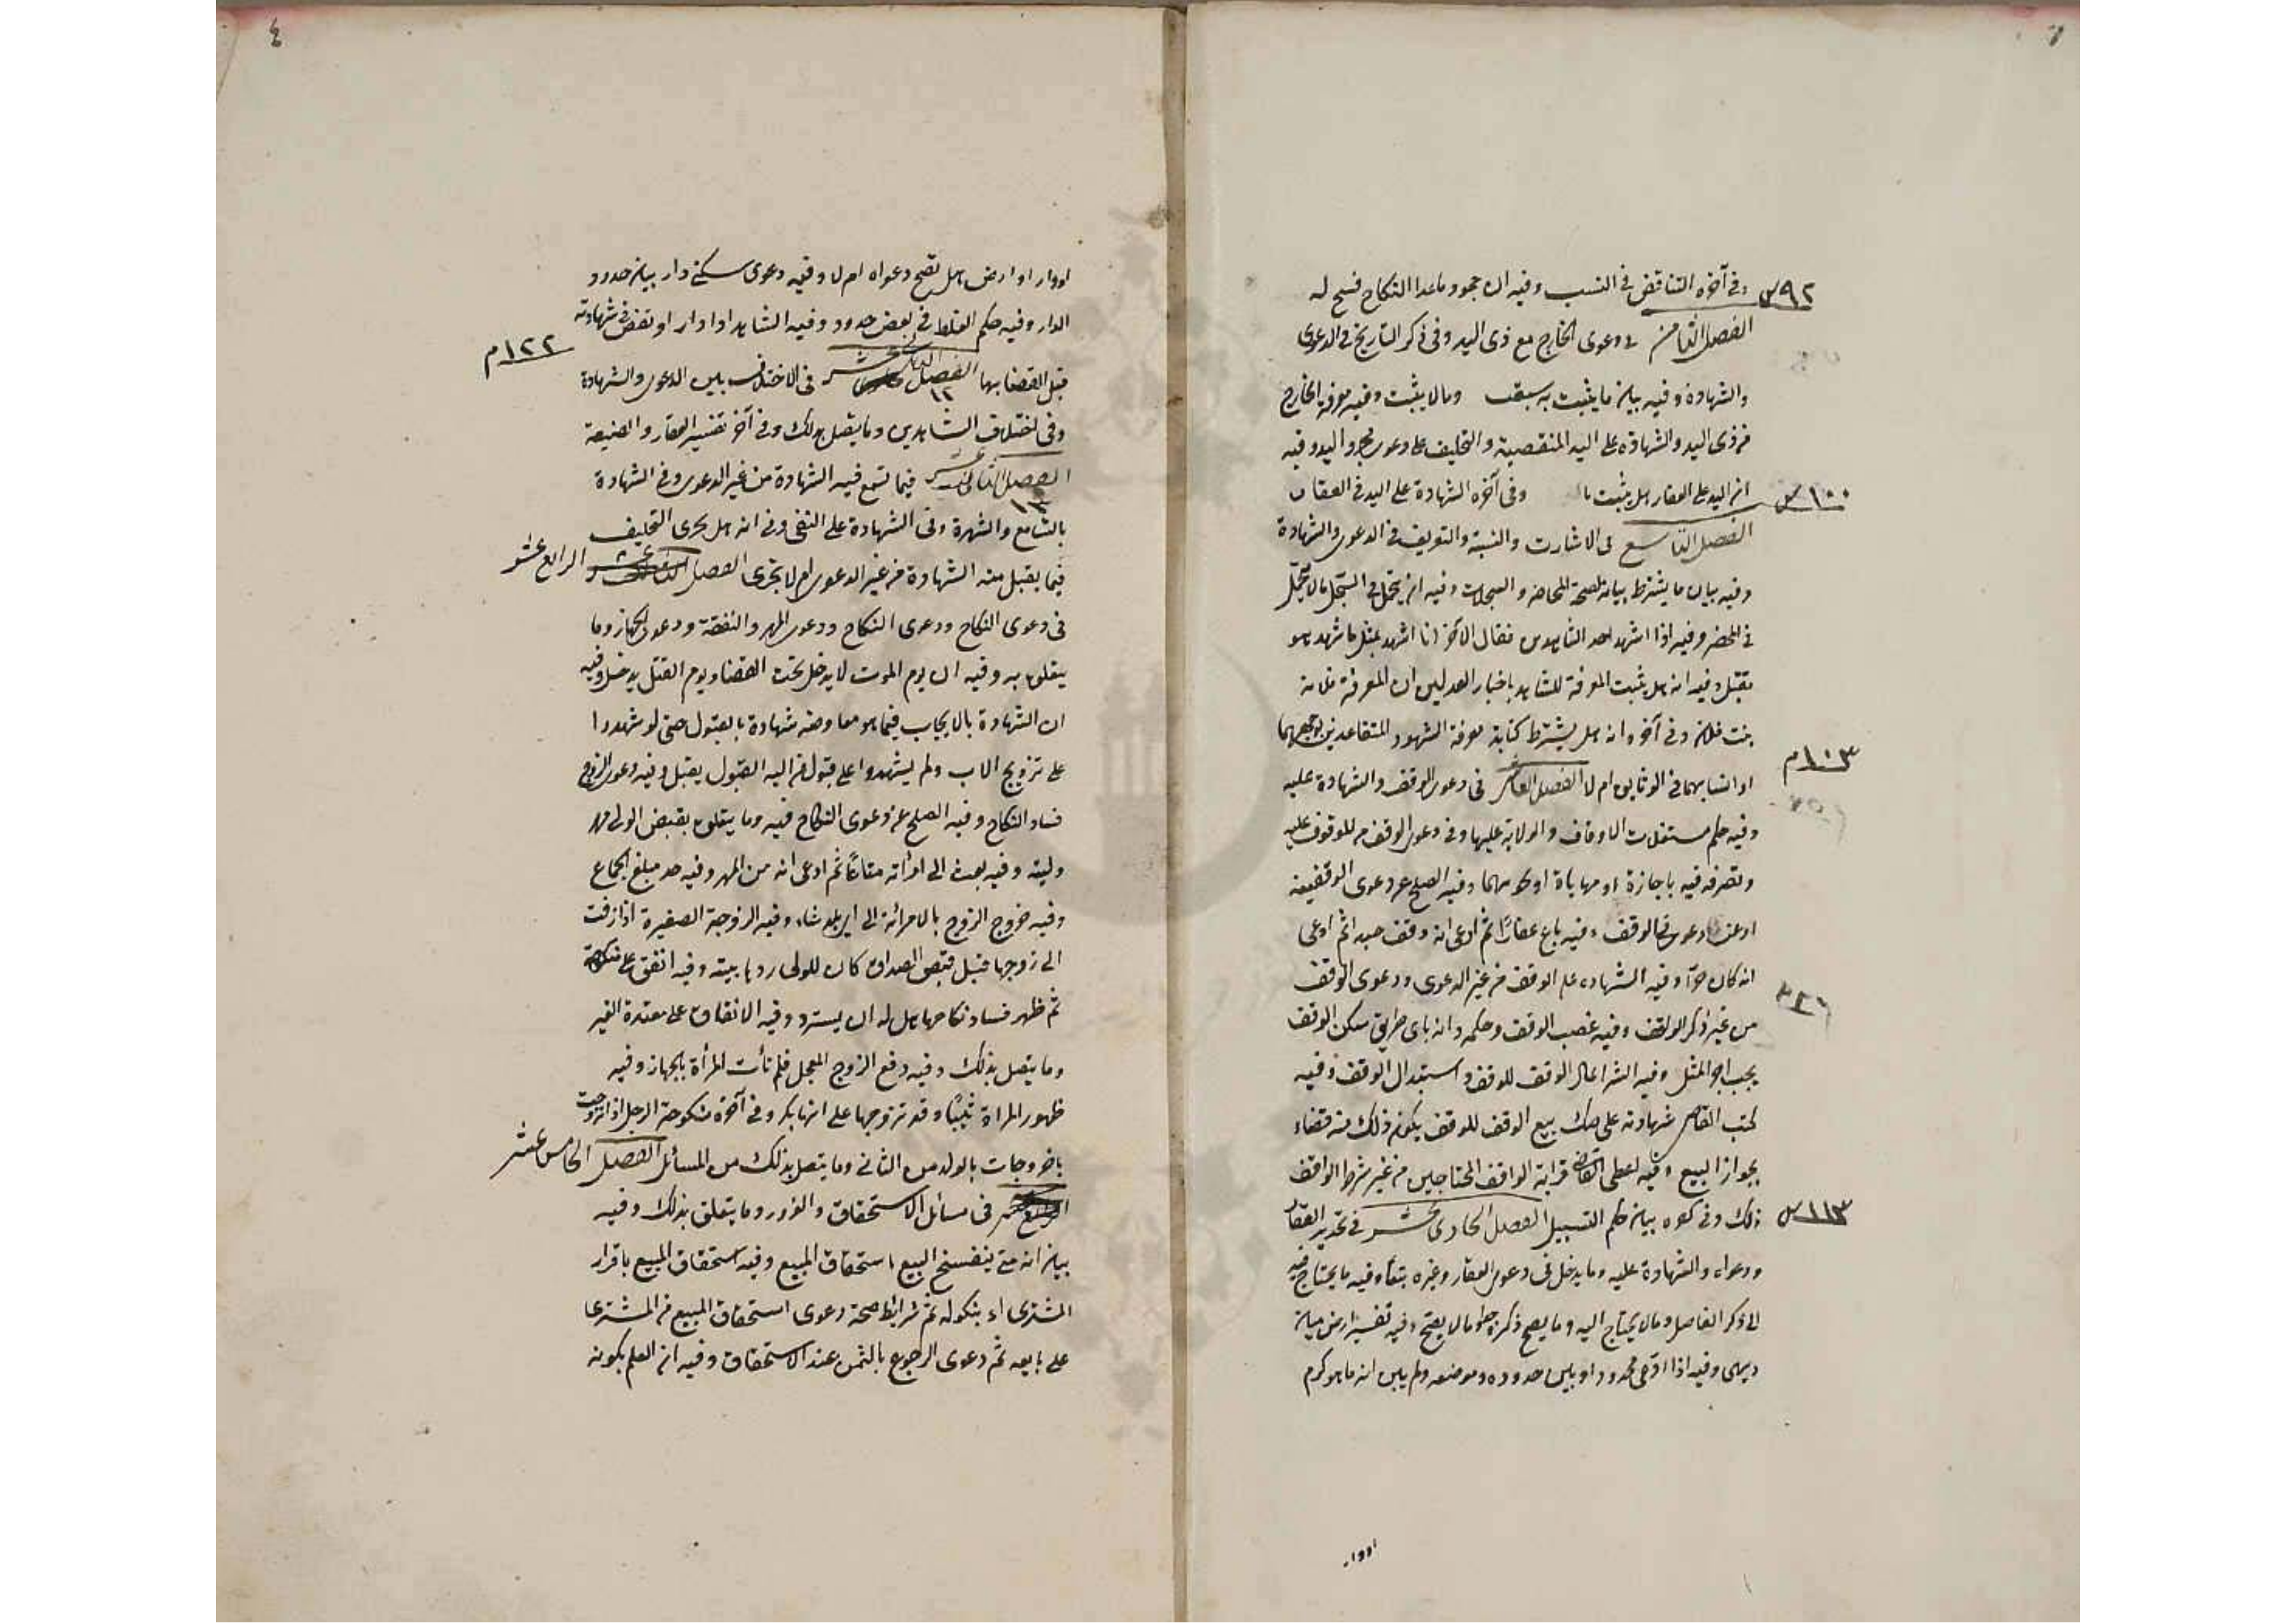 وفى آخره التناقض فى النسب وفيه ان جحود ماعدا النكاح فسخ له
الفصل الثامن فى دعوى الخارج مع ذى اليد وفى ذكر التاريخ فى الدعوى
والشهادة وفيه بيان ما يثبت به سبقت وما لا يثبت وفيه معرفة الخارج
من ذى اليد والشهادة على اليد المنقصية والتحليف على دعوى مجرد اليد وفيه
ان اليد على العقار هل يثبت وفى آخره الشهادة على اليد فى العقار
الفصل التاسع فى الاشارت والنسبة والتعريف فى الدعوى والشهادة
وفيه بيان ما يشترط بيانه لصحة المحاضر والسجلات وفيه انه يتحمل فى السجل مالا يتحمل
فى المحضر وفيه اذا اشهد احد الشاهدين فقال الآخر انا اشهد بمثل ما شهد هو
تقبل وفيه انه هل يثبت المعرفة للشاهد باخبار العدلين ان المعرفة فلانة
بنت فلان وفى آخره انه هل يشترط كتابة معرفة الشهود المتعاقدين بوجههما
او انسابهما فى الوثايق ام لا الفصل العاشر فى دعوى الوقف والشهادة عليه
وفيه حكم مستغلات الاوقاف والولاية عليها وفى دعوى الوقف من الموقوف عليه
وتصرفه فيه باجازة او مهاياة او نحوهما وفيه الصلح عن دعوى الوقفية
او عن دعوى الوقف وفيه باع عقارًا ثم ادعى انه وقف عبدا ثم ادعى
انه كان حرًا وفيه الشهادة على الوقف من غير الدعوى ودعوى الوقف
من غير ذكر الواقف وفيه غصب الوقف وحكمه وانه باى طريق سكن الوقف
يجب اجر المثل وفيه الشرا بمال الوقف للوقف واستبدال الوقف وفيه
كتب القاضى شهادته على صك بيع الوقف للوقف يكون ذلك منه قضاء
بجواز البيع وفيه اعطى القاضى قرابة الواقف المحتاجين من غير شرط الواقف
ذلك وفى بيان حكم التسبيل الفصل الحادى عشر فى تحديد العقار
ودعواه والشهادة عليه وما يدخل فى دعوى العقار وغيره تبعا وفيه ما يحتاج فيه
الى ذكر الفاصل ومالا يحتاج اليه وما يصح ذكره حدا وما لا يصح وفيه تفسير ارض ميان
ديهى وفيه اذا ادعى محدودا وبين حدوده وموضعه ولم يبين انه ما هو كرم
٩٢س
١٠٠س
١٠٣م
١١٣س
اودار
٤
اودار او ارض هل تصح دعواه ام لا وفيه دعوى سكنى دار بيان حدود
الدار وفيه حكم الغلط فى بعض حدود وفيه الشاهد اذا دار او نقص فى شهادته
قبل القضا بها الفصل ١٢ عشر فى الاختلاف بين الدعوى والشهادة
وفى اختلاف الشاهدين وما يتصل بذلك وفى آخر تفسير العقار والضيعة
الفصل الثانى عشر ١٣ فيما تسمع فيه الشهادة من غير الدعوى وفى الشهادة
بالتسامع والشهرة وفى الشهادة على النفى وفى انه هل يجرى التحليف
فيما يقبل منه الشهادة من غير الدعوى ام لا يجرى الفصل الثالث عشر الرابع عشر
فى دعوى النكاح ودعوى النكاح ودعوى المهر والنفقة ودعوى الجهاز وما
يتعلق به وفيه ان يوم الموت لا يدخل تحت القضا ويوم القتل يدخل وفيه
ان الشهادة بالايجاب فيما هو معاوضه شهادة بالقبول حتى لو شهدوا
على تزويج الاب ولم يشهدوا على قبول من اليه القبول يقبل وفيه دعوى الزوج
فساد النكاح وفيه الصلح عن دعوى النكاح فيه وما يتعلق بقبض الولى مهر
وليته وفيه بعث الى امراته متاعًا ثم ادعى انه من المهر وفيه حد مبلغ الجماع
وفيه خروج الزوج بالامرائة الى اى بلد شاء وفيه الزوجة الصغيرة اذا زفت
الى زوجها قبل قبض الصداق كان للولى ردها بيته وفيه انفق على منكوحة
ثم ظهر فساد نكاحها هل له ان يسترد وفيه الانفاق على معتدة الغير
وما يتصل بذلك وفيه دفع الزوج المعجل فلم تأت المرأة بالجهاز وفيه
ظهور المراة ثيبًا وقد تزوجها على انها بكر وفى آخره منكوحة الرجل اذا تزوجت
باخر وجات بالولد من الثانى وما يتصل بذلك من المسائل الفصل الخامس عشر
فى مسائل الاستحقاق والغرور وما يتعلق بذلك وفيه
بيان انه متى ينفسخ البيع استحقاق المبيع وفيه استحقاق المبيع باقرار
المشترى او بنكوله ثم شرائط صحة دعوى استحقاق المبيع من المشترى
على بايعه ثم دعوى الرجوع بالثمن عند الاستحقاق وفيه ان العلم بكونه
١٢٢م